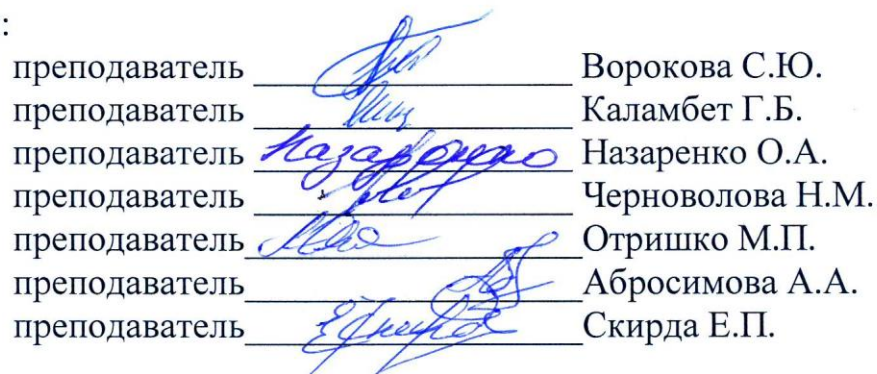 :
преподаватель Ворокова С.Ю.
преподаватель Каламбет Г.Б.
преподаватель Назаренко Назаренко О.А.
преподаватель Черноволова Н.М.
преподаватель Отришко М.П.
преподаватель Абросимова А.А.
преподаватель Скирда Е.П.